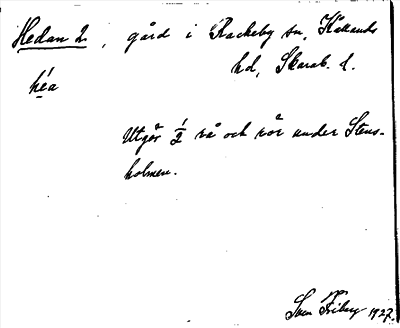 Hedan 2, gård i Rackeby sn, Kållands
hd, Skarab. l.
héa
Utgör 1/2 rå och rör under Stens-
holmen.
Sven Friberg 1927.